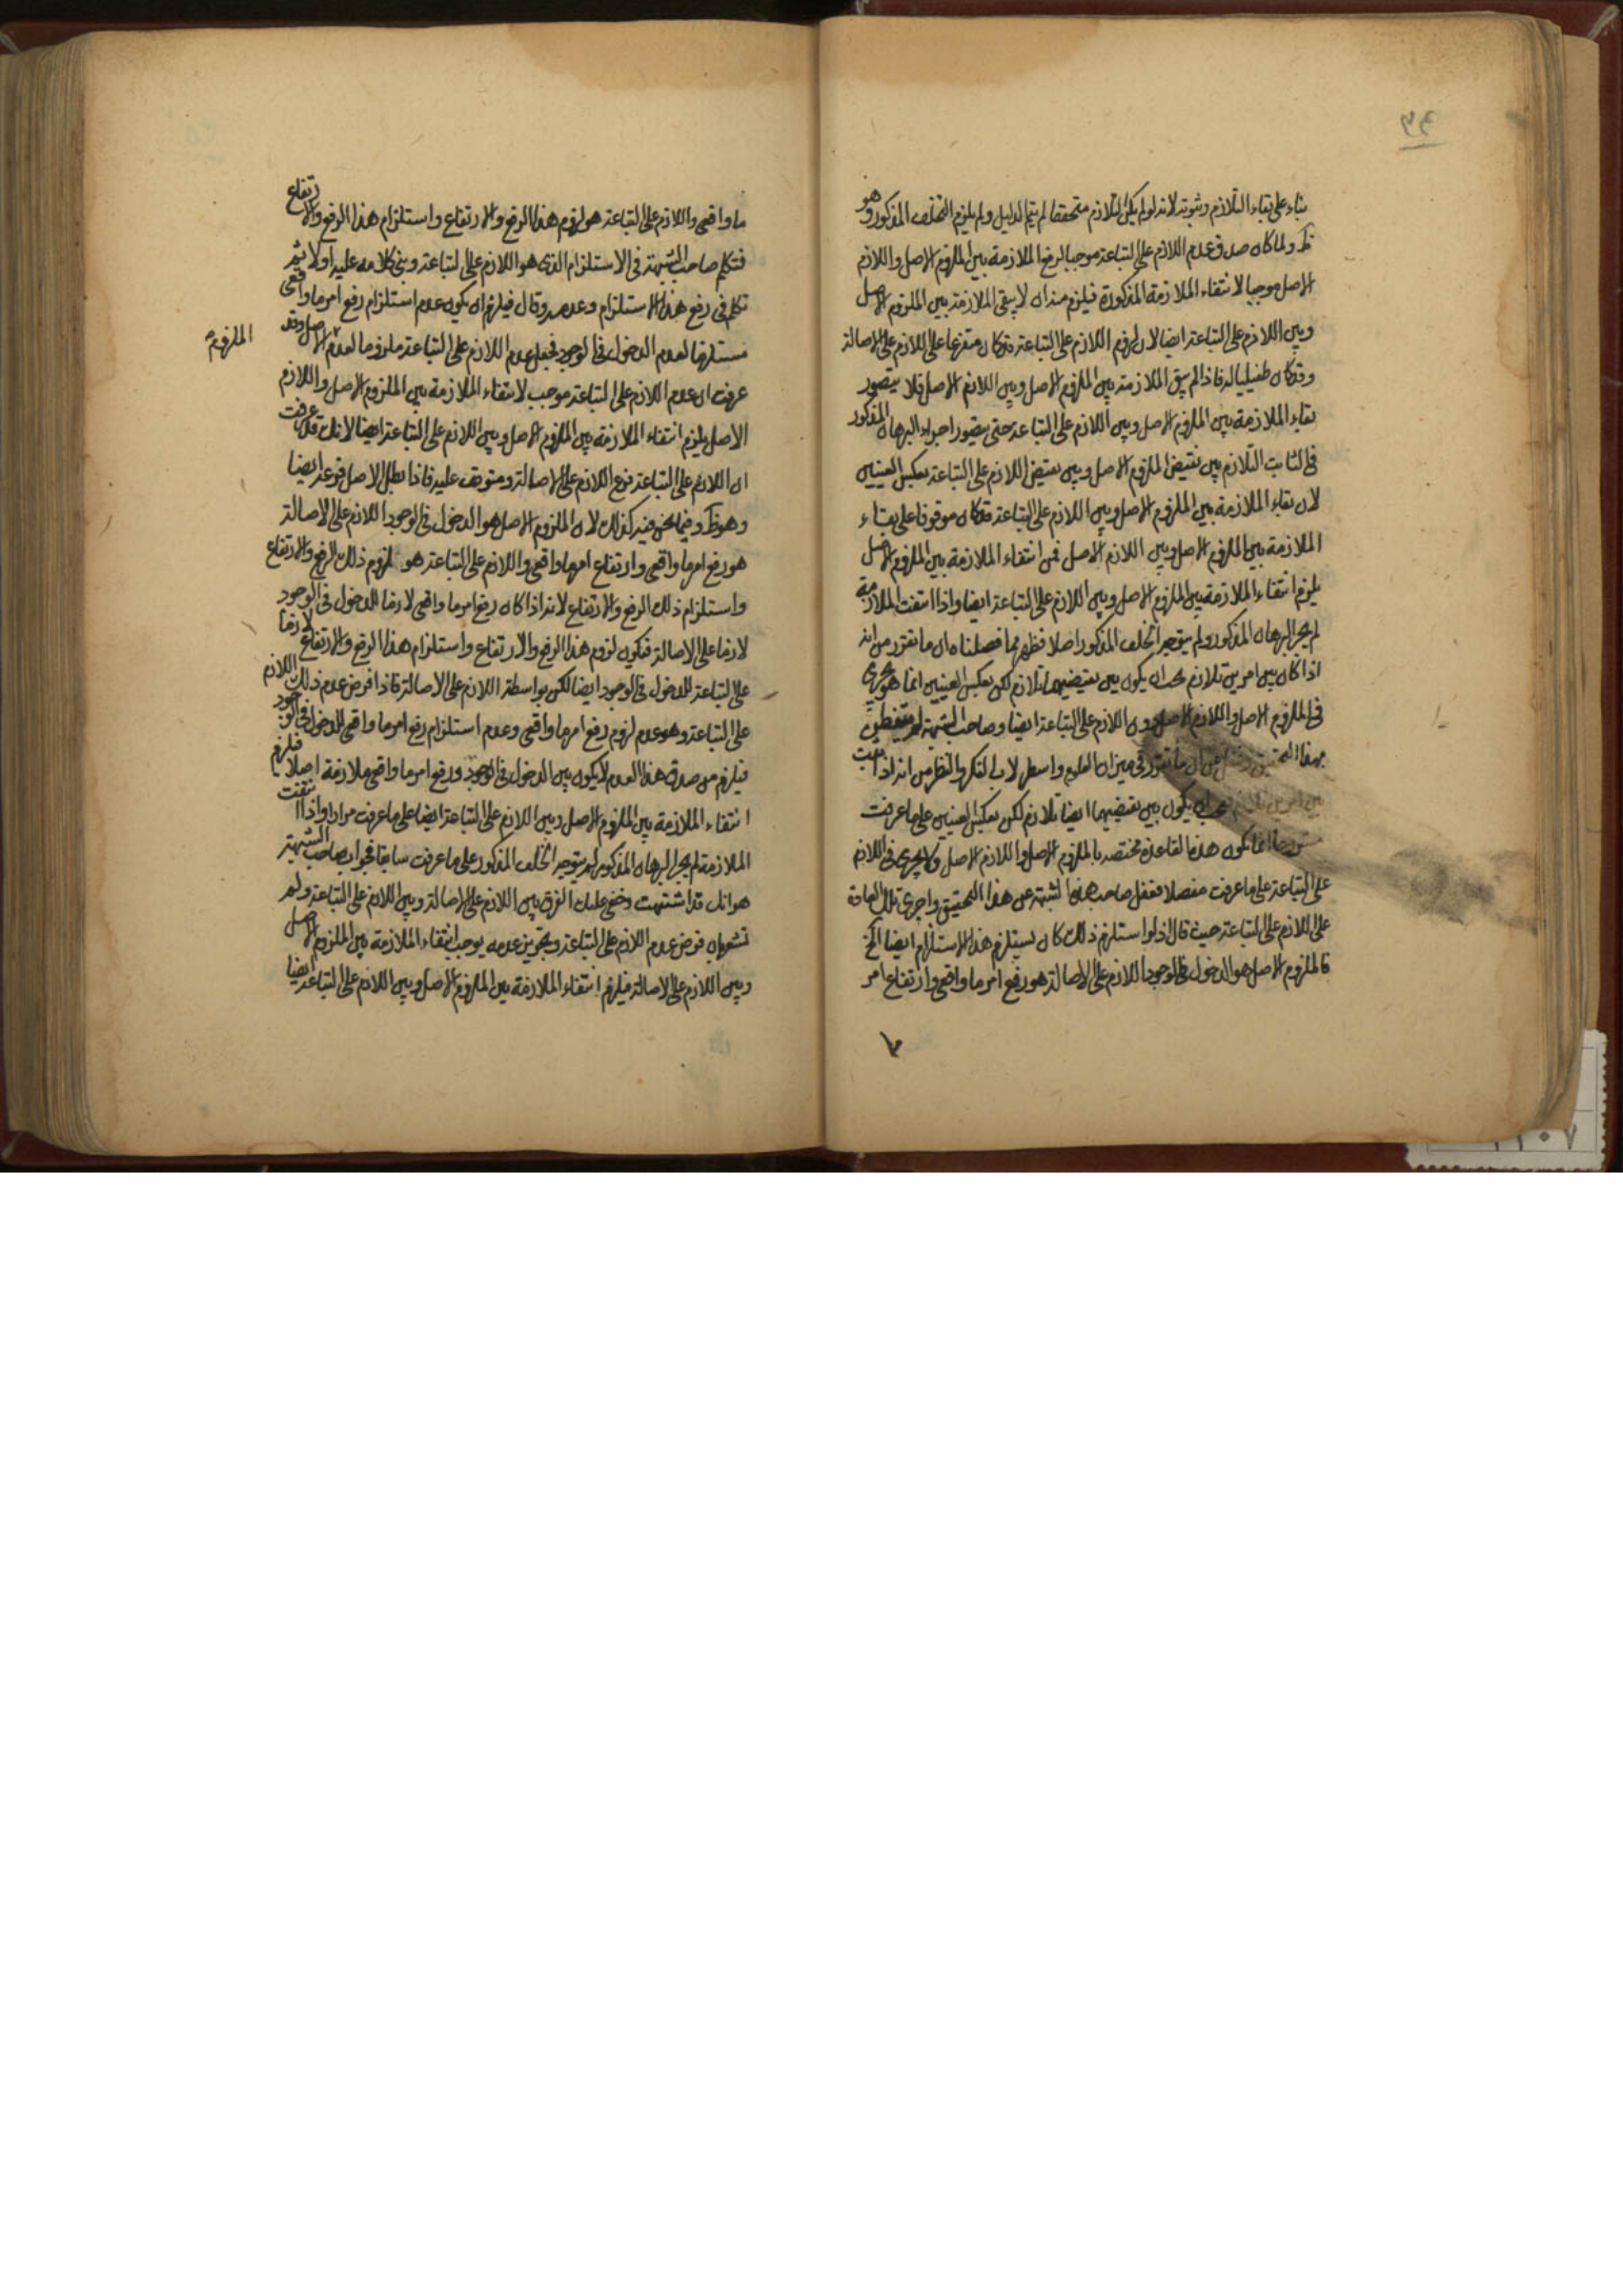 بناء على بقاء التلازم وثبوته لانه لو لم يكن التلازم متحققا لم يتم الدليل ولم يلزم التخلف المذكور وهو
ظ ولما كان صدق عدم اللازم على التباعة موجبا لرفع الملازمة بين الملزوم الاصل واللازم
الاصل موجبا لانتفاء الملازمة المذكورة فيلزم منه ان لا يبقى الملازمة بين الملزوم الاصل
وبين اللازم على التباعة ايضا لان لزوم اللازم على التباعة قد كان متفرعا على اللازم على الاصالة
وقد كان طفيليا له فاذا لم يبق الملازمة بين الملزوم الاصل وبين اللازم الاصل فلا يتصور
بقاء الملازمة بين الملزوم الاصل وبين اللازم على التباعة حتى يتصور اجراء البرهان المذكور
في اثبات التلازم بين نقيض الملزوم الاصل وبين نقيض اللازم على التباعة بعكس العينين
لان بقاء الملازمة بين الملزوم الاصل وبين اللازم على التباعة قد كان موقوفا على بقاء
الملازمة بين الملزوم الاصل وبين اللازم الاصل فمن انتفاء الملازمة بين الملزوم الاصل
يلزم انتفاء الملازمة بين الملزوم الاصل وبين اللازم على التباعة ايضا واذا انتفت الملازمة
لم يجر البرهان المذكور ولم يتوجه الخلف المذكور اصلا فظهر مما فصلناه ان ما تقرر من انه
اذا كان بين امرين تلازم يجب ان يكون بين نقيضيهما تلازم لكن بعكس العينين انما هو يجري
في الملزوم الاصل واللازم الاصل دون اللازم على التباعة ايضا وصاحب الشبهة لم يتفطن
بهذا ان ما تقرر في ميزان العلوم واسطرلاب الفكر والنظر من انه اذا ثبت
بين امرين يجب ان يكون بين نقيضيهما ايضا تلازم لكن بعكس العينين على ما عرفت
انما يكون هذه القاعدة مختصة بالملزوم الاصل واللازم الاصل ولا يجري في اللازم
على التباعة على ما عرفت مفصلا فغفل صاحب هذه الشبهة عن هذا التحقيق واجرى تلك القاعدة
على اللازم على التباعة حيث قال اذ لو استلزم ذلك كان يستلزم هذا الاستلزام ايضا الخ
فالملزوم الاصل هو الدخول في الوجود اللازم على الاصالة هو رفع امر ما واقعي وارتفاع امر
ما واقعي واللازم على التباعة هو لزوم هذا الرفع والارتفاع واستلزام هذا الرفع والارتفاع
فتكلم صاحب الشبهة في الاستلزام الذي هو اللازم على التباعة وبنى كلامه عليه اولا ثم
تكلم في رفع هذا الاستلزام وعدمه وقال فيلزم ان يكون عدم استلزام رفع امر ما واقعي
مستلزما لعدم الدخول في الوجود فجعل عدم اللازم على التباعة ملزوما لعدم الاصل وقد
الملزوم
عرفت ان عدم اللازم على التباعة موجب لانتفاء الملازمة بين الملزوم الاصل واللازم
الاصل يلزم انتفاء الملازمة بين الملزوم الاصل وبين اللازم على التباعة ايضا لانك قد عرفت
ان اللازم على التباعة فرع اللازم على الاصالة ومتوقف عليه فاذا بطل الاصل فرعه ايضا
وهو ظ وفيما نحن فيه كذلك لان الملزوم الاصل هو الدخول في الوجود اللازم على الاصالة
هو رفع امر ما واقعي وارتفاع امر ما واقعي واللازم على التباعة هو لزوم ذلك الرفع والارتفاع
واستلزام ذلك الرفع والارتفاع لانه اذا كان رفع امر ما واقعي لازما للدخول في الوجود
لازما على الاصالة فتكون لزوم هذا الرفع والارتفاع واستلزام هذا الرفع والارتفاع لازما
على التباعة للدخول في الوجود ايضا لكن بواسطة اللازم على الاصالة فاذا فرض عدم ذلك اللازم
على التباعة وهو عدم لزوم رفع امر ما واقعي وعدم استلزام رفع امر ما واقعي للدخول في الوجود
فيلزم من صدق هذا العدم لا يكون بين الدخول في الوجود ورفع امر ما واقعي ملازمة اصلا فيلزم
انتفاء الملازمة بين الملزوم الاصل وبين اللازم على التباعة ايضا على ما عرفت مرارا واذا انتفت
الملازمة لم يجر البرهان المذكور لم يتوجه الخلف المذكور على ما عرفت سابقا فجواب صاحب الشبهة
هو انك قد اشتبهت وخفي عليك الفرق بين اللازم على الاصالة وبين اللازم على التباعة ولم
تشعر بان فرض عدم اللازم على التباعة وتجويز عدمه يوجب انتفاء الملازمة بين الملزوم الاصل
وبين اللازم على الاصالة فيلزم انتفاء الملازمة بين الملزوم الاصل وبين اللازم على التباعة ايضا